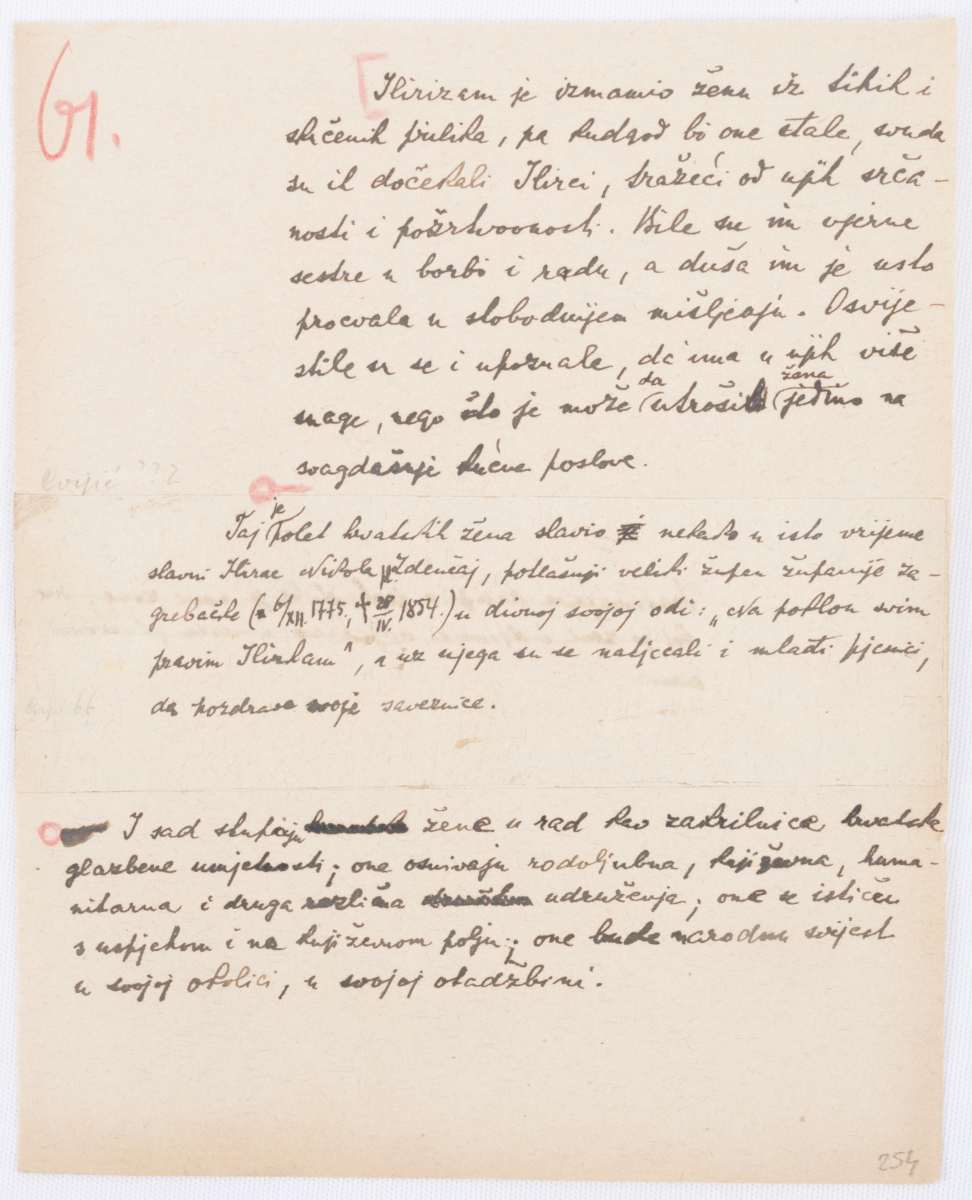 61.
Ilirizam je izmamio ženu iz tihih i
skučenih prilika, pa kudgod bi one stale, svuda
su ih dočekali Ilirci, tražeći od njih srča-
nosti i požrtvovnosti. Bile su im vjerne
sestre u borbi i radu, a duša im je usto
procvala u slobodnijem mišljenju. Osvije-
stile su se i upoznale, da ima u njih više
snage, nego što je može da utroši žena jedino na
svagdašnje kućne poslove.
Taj je polet hrvatskih žena slavio nekako u isto vrijeme
slavni Ilirac Nikola Zdenčaj, potlašnji veliki župan županije za-
grebačke (* 6/XII. 1775, + 28/IV. 1854.) u divnoj svojoj odi: „Na poklon svim
pravim Ilirkam", a uz njega su se natjecali i mlađi pjesnici,
da pozdrave svoje saveznice.
I sad stupaju žene u rad kao zakrilnice hrvatske
glazbene umjetnosti; one osnivaju rodoljubna, književna, huma-
nitarna i druga različna udruženja; one se ističu
s uspjehom i na književnom polju; one bude narodnu svijest
u svojoj okolici, u svojoj otadžbini.
254